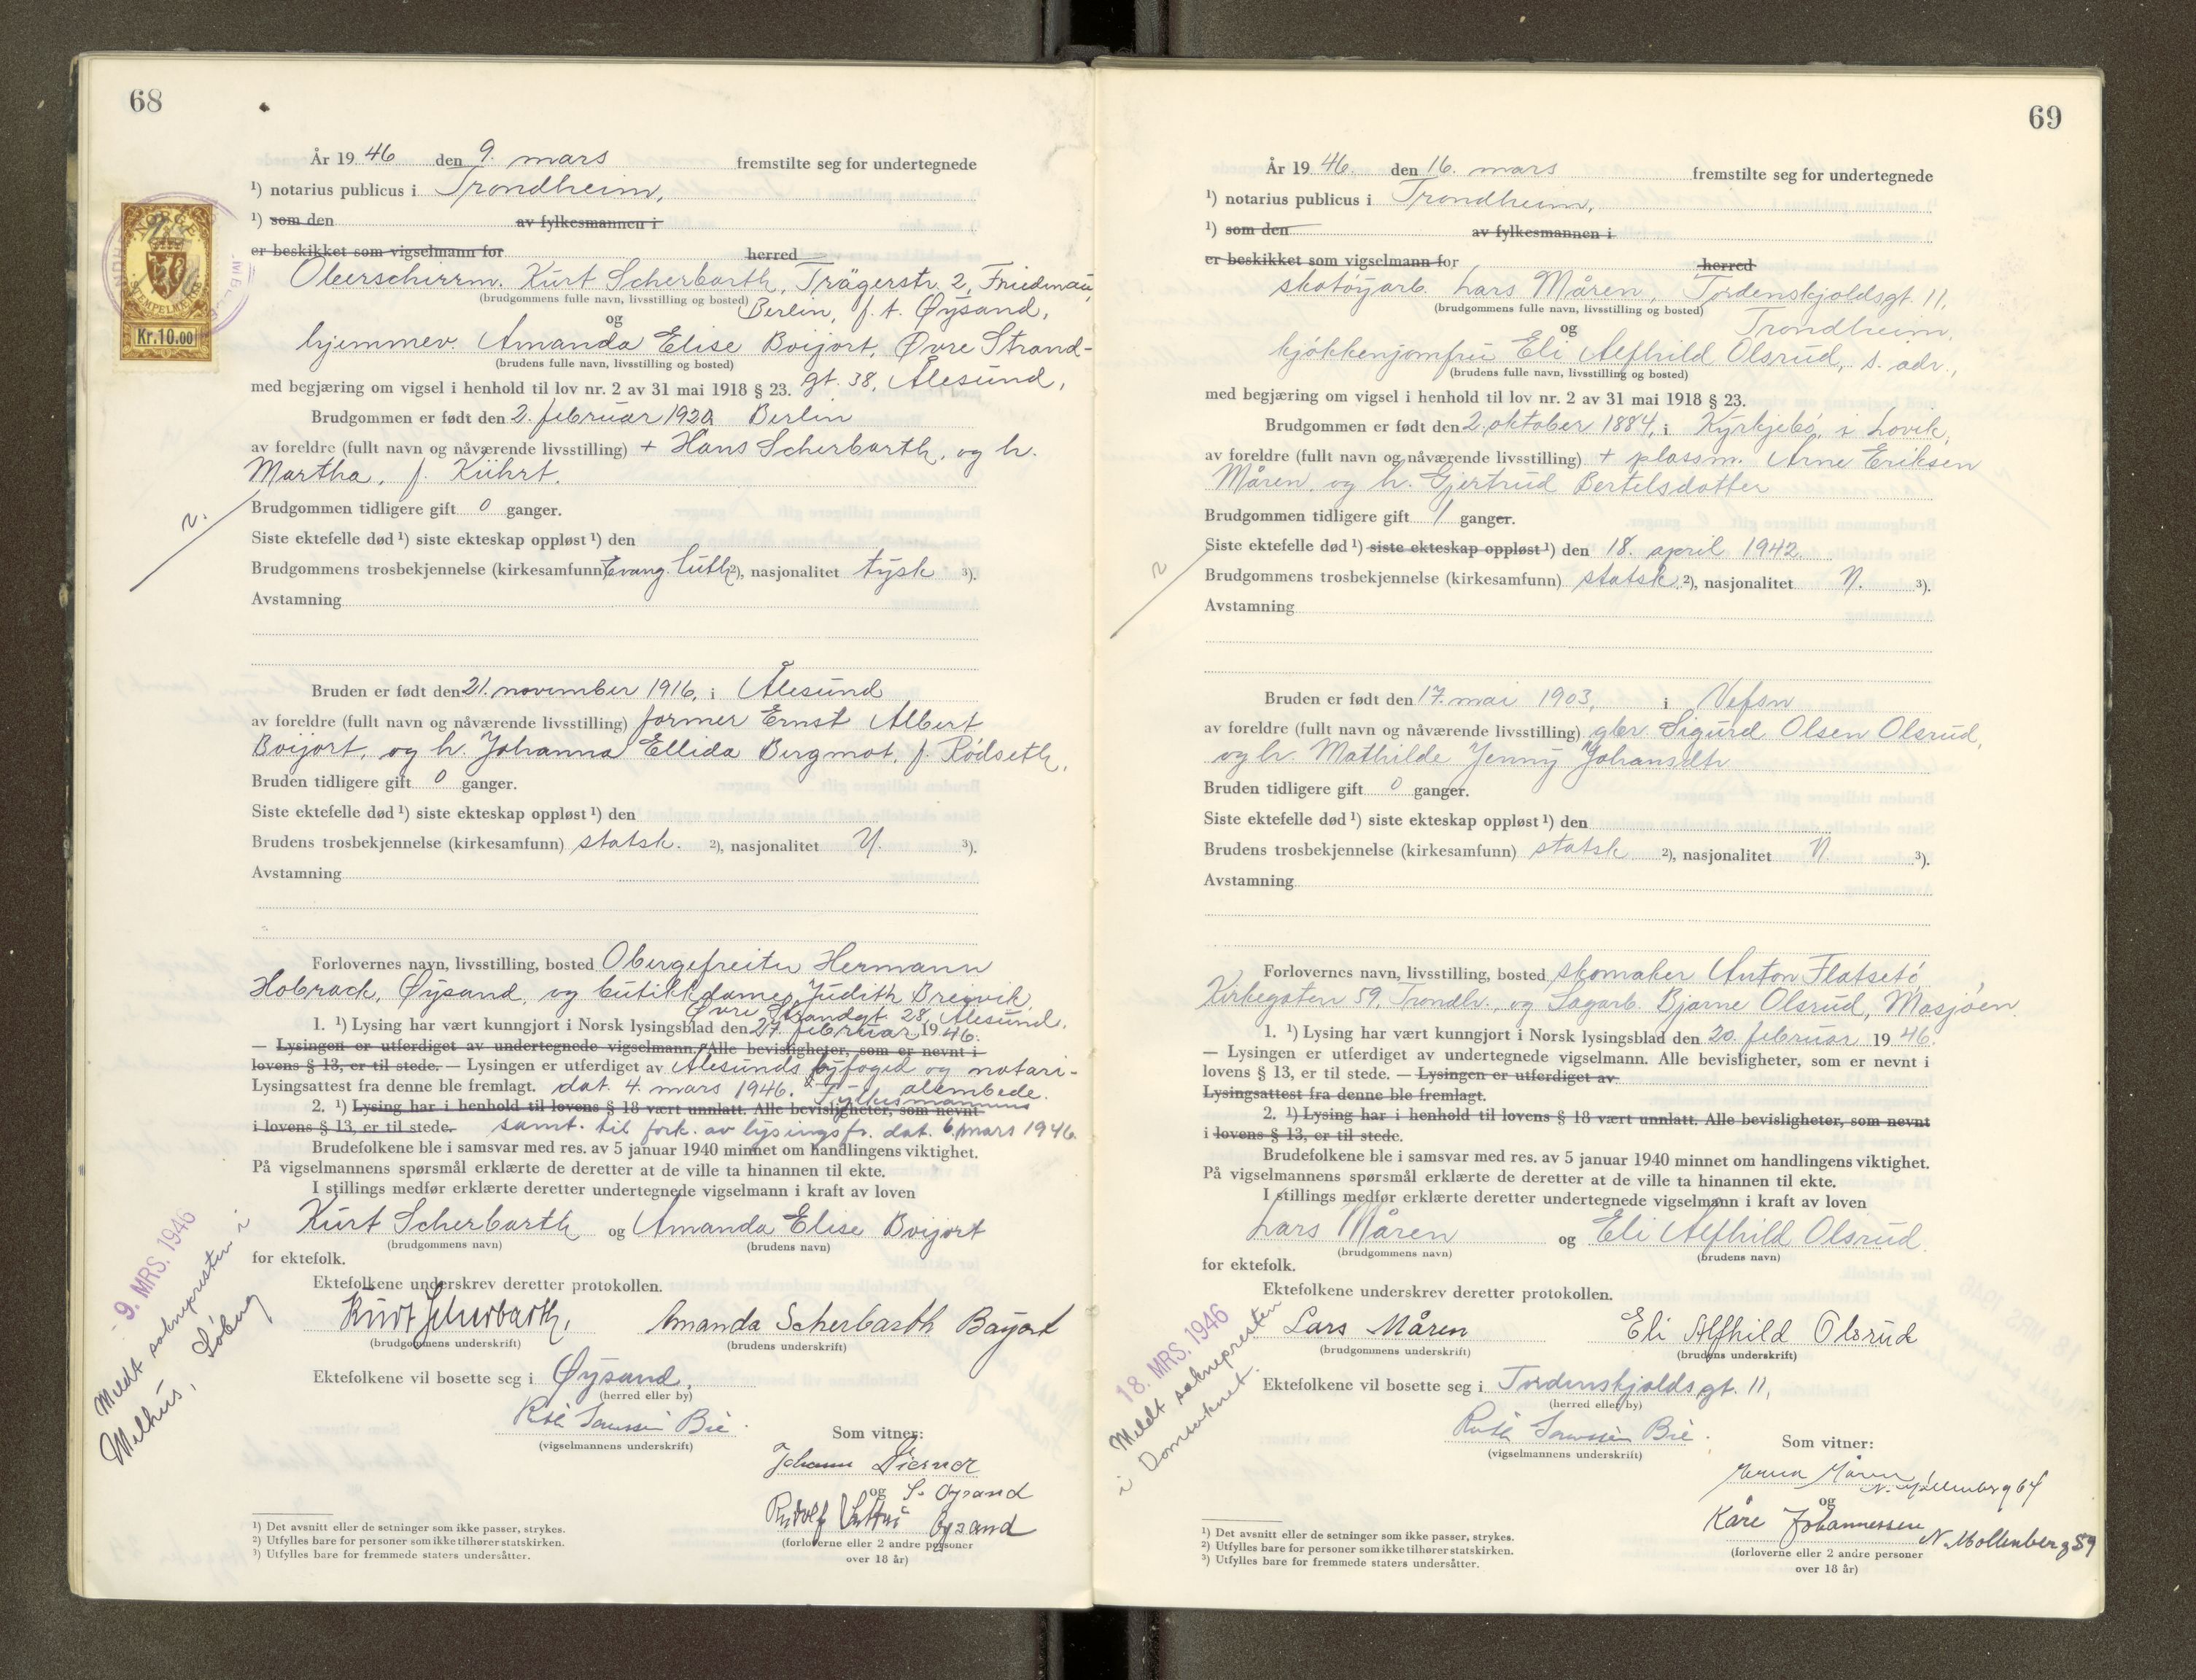 68
År 19 46 den 9. mars fremstilte seg for undertegnede
¹) notarius publicus i Trondheim,
¹) som den av fylkesmannen i
er beskikket som vigselmann for herred
Oberschirrm. Kurt Scherbarth, Trägerstr. 2, Friedenau,
(brudgommens fulle navn, livsstilling og bosted) Berlin, f. t. Øysand,
og
hjemmev. Amanda Elise Boijort, Øvre Strand-
(brudens fulle navn, livsstilling og bosted)
med begjæring om vigsel i henhold til lov nr. 2 av 31 mai 1918 § 23. gt. 38, Ålesund,
Brudgommen er født den 2. februar 1920 Berlin
av foreldre (fullt navn og nåværende livsstilling) + Hans Scherbarth, og h.
Martha, f. Kührt.
Brudgommen tidligere gift 0 ganger.
Siste ektefelle død ¹) siste ekteskap oppløst ¹) den
Brudgommens trosbekjennelse (kirkesamfunn) Evang. luth. ²), nasjonalitet tysk ³).
Avstamning
Bruden er født den 21. november 1916, i Ålesund
av foreldre (fullt navn og nåværende livsstilling) former Ernst Albert
Boijort, og h. Johanna Ellida Bergmot, f. Rødseth,
Bruden tidligere gift 0 ganger.
Siste ektefelle død ¹) siste ekteskap oppløst ¹) den
Brudens trosbekjennelse (kirkesamfunn) statsk. ²), nasjonalitet N. ³).
Avstamning
Forlovernes navn, livsstilling, bosted Obergefreiter Hermann
Hobrack, Øysand, og butikkdame Judith Breivik,
Øvre Strandgt. 28, Ålesund.
1. ¹) Lysing har vært kunngjort i Norsk lysingsblad den 27. februar 19 46.
— Lysingen er utferdiget av undertegnede vigselmann. Alle bevisligheter, som er nevnt i
lovens § 13, er til stede. — Lysingen er utferdiget av Ålesunds byfogd og notari-
Lysingsattest fra denne ble fremlagt. dat. 4. mars 1946. & Fylkesmannens alembede.
2. ¹) Lysing har i henhold til lovens § 18 vært unnlatt. Alle bevisligheter, som nevnt
i lovens § 13, er til stede. samt. til fork. av lysingsfr. dat. 6. mars 1946.
Brudefolkene ble i samsvar med res. av 5 januar 1940 minnet om handlingens viktighet.
På vigselmannens spørsmål erklærte de deretter at de ville ta hinannen til ekte.
I stillings medfør erklærte deretter undertegnede vigselmann i kraft av loven
Kurt Scherbarth og Amanda Elise Boijort
(brudgommens navn) (brudens navn)
for ektefolk.
Ektefolkene underskrev deretter protokollen.
Kurt Scherbarth, Amanda Scherbarth Boijort
(brudgommens underskrift) (brudens underskrift)
Ektefolkene vil bosette seg i Øysand,
(herred eller by)
(vigselmannens underskrift)
Som vitner:
Johann
og S. Øysand
Rudolf Øysand
(forloverne eller 2 andre personer
over 18 år)
- 9. MRS. 1946
Meldt sokneprest­en i
Melhus, Søberg
¹) Det avsnitt eller de setninger som ikke passer, strykes.
²) Utfylles bare for personer som ikke tilhører statskirken.
³) Utfylles bare for fremmede staters undersåtter.
NORGE
STEMPELMERKE
Kr.10.00
69
År 19 46. den 16. mars fremstilte seg for undertegnede
¹) notarius publicus i Trondheim,
¹) som den av fylkesmannen i
er beskikket som vigselmann for herred
skotøyarb. Lars Måren, Tordenskjoldsgt. 11,
(brudgommens fulle navn, livsstilling og bosted) Trondheim,
og
kjøkkenjomfru Eli Alfhild Olsrud, s. adr.,
(brudens fulle navn, livsstilling og bosted)
med begjæring om vigsel i henhold til lov nr. 2 av 31 mai 1918 § 23.
Brudgommen er født den 2. oktober 1884, i Kyrkjebø, i Lovik,
av foreldre (fullt navn og nåværende livsstilling) + plassm. Arne Eriksen
Måren, og h. Gjertrud Bertelsdotter
Brudgommen tidligere gift 1 ganger.
Siste ektefelle død ¹) siste ekteskap oppløst ¹) den 18. april 1942
Brudgommens trosbekjennelse (kirkesamfunn) statsk ²), nasjonalitet N. ³).
Avstamning
Bruden er født den 17. mai 1903, i Vefsn
av foreldre (fullt navn og nåværende livsstilling) gbr. Sigurd Olsen Olsrud,
og h. Mathilde Jenny Johansdtr
Bruden tidligere gift 0 ganger.
Siste ektefelle død ¹) siste ekteskap oppløst ¹) den
Brudens trosbekjennelse (kirkesamfunn) statsk ²), nasjonalitet N. ³).
Avstamning
Forlovernes navn, livsstilling, bosted skomaker Anton Flatsetø,
Kirkegaten 59, Trondh., og Sagarb. Bjarne Olsrud, Mosjøen.
1. ¹) Lysing har vært kunngjort i Norsk lysingsblad den 20. februar 19 46.
— Lysingen er utferdiget av undertegnede vigselmann. Alle bevisligheter, som er nevnt i
lovens § 13, er til stede. — Lysingen er utferdiget av
Lysingsattest fra denne ble fremlagt.
2. ¹) Lysing har i henhold til lovens § 18 vært unnlatt. Alle bevisligheter, som nevnt
i lovens § 13, er til stede.
Brudefolkene ble i samsvar med res. av 5 januar 1940 minnet om handlingens viktighet.
På vigselmannens spørsmål erklærte de deretter at de ville ta hinannen til ekte.
I stillings medfør erklærte deretter undertegnede vigselmann i kraft av loven
Lars Måren og Eli Alfhild Olsrud.
(brudgommens navn) (brudens navn)
for ektefolk.
Ektefolkene underskrev deretter protokollen.
Lars Måren Eli Alfhild Olsrud
(brudgommens underskrift) (brudens underskrift)
Ektefolkene vil bosette seg i Tordenskjoldsgt. 11,
(herred eller by)
(vigselmannens underskrift)
Som vitner:
Måren
N. Møllenberg 64
og
Kåre Johannessen
N. Møllenberg 59
(forloverne eller 2 andre personer
over 18 år)
18. MRS. 1946
Meldt sokneprest­en
i Domsoknet.
¹) Det avsnitt eller de setninger som ikke passer, strykes.
²) Utfylles bare for personer som ikke tilhører statskirken.
³) Utfylles bare for fremmede staters undersåtter.